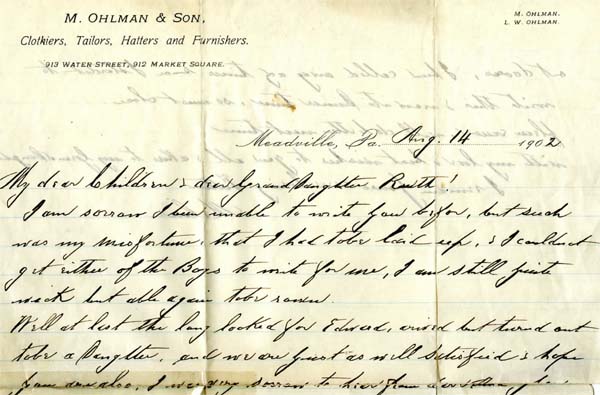 M. OHLMAN & SON,
Clothiers, Tailors, Hatters and Furnishers.
913 WATER STREET, 912 MARKET SQUARE.
M. OHLMAN.
L. W. OHLMAN.
Meadville, Pa. Aug. 14 1902
My dear Children & dear Grand Daughter Ruth!
I am sorrow I been unable to write you befor, but such
was my misfortune, that I had tobe laid up, & I could not
get either of the Boys to write for me, I am still quite
weak but able again tobe
Well at last the long looked for Edward, arived but turned out
tobe a Daughter, and we are just as well satisfied & hope
you are also, I was very sorrow to hear